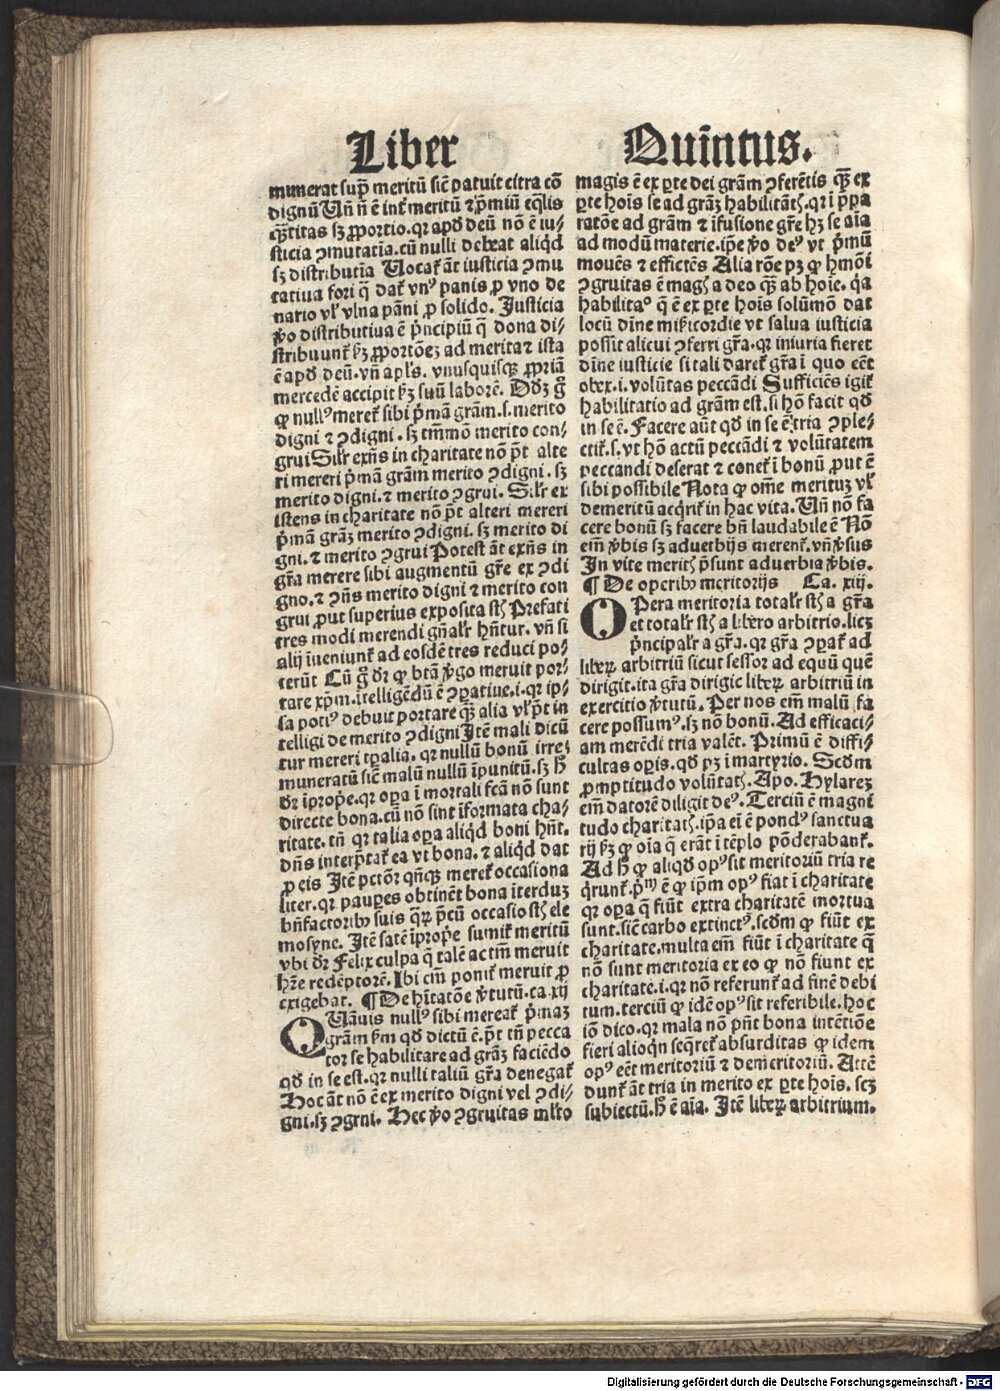 Liber Quintus.
munerat sup̄ meritū sic̄ patuit citra cō
dignū Un̄ nō ē int̄ meritū ⁊ p̄miū eq̄lis
quātitas sz ꝓportio. qr apd̄ deū nō ē iu⸗
sticia ꝯmutatīa. cū nulli debeat aliqd̄
sz distributīa Uocat̄ āt iusticia ꝯmu
tatiua fori q̄ dat̄ vnꝰ panis ꝓ vno de
nario vl̓ vlna pāni ꝓ solido. Iusticia
v̓o distributiua ē p̄ncipiū q̄ dona di⸗
stribuunt̄ ẜz ꝓportōez ad merita ⁊ ista
ē apd̄ deū. vn̄ apl̓s. vnusquisqꝫ ꝓpriā
mercedē accipit ẜz suū laborē. Dd̓z g̊
ꝙ nullꝰ meret̄ sibi p̄mā grām. s. merito
digni ⁊ ꝯdigni. sz tm̄mō merito con⸗
grui Sil̓r exn̄s in charitate nō pōt alte
ri mereri p̄mā grām merito ꝯdigni. sz
merito digni. ⁊ merito ꝯgrui. Sil̓r ex
istens in charitate nō pōt alteri mereri
p̄mā grāz merito ꝯdigni. sz merito di
gni. ⁊ merito ꝯgrui Potest āt exn̄s in
gr̄a merere sibi augmentū gr̄e ex ꝯdi
gno. ⁊ ꝯn̄s merito digni ⁊ merito con
grui ꝓut superius exposita st̄ Prefati
tres modi merendi gn̄al̓r hn̄tur. vn̄ si
alij īueniunt̄ ad eosdē tres reduci po⸗
terūt Cū g̊ dr̄ ꝙ btā v̓go meruit por⸗
tare xp̄m. ītelligēdū ē ꝯparatiue. i. qr ip⸗
sa potiꝰ debuit portare quā alia vl̓ pōt in
telligi de merito ꝯdigni Itē mali dicū
tur mereri tp̄alia. qr nullū bonū irre⸗
muneratū sic̄ malū nullū īpunitū. sz h̄
dr̄ īpropē. qr oꝑa ī mortali fcā nō sunt
directe bona. cū nō sint īformata cha⸗
ritate. tn̄ qr talia oꝑa aliqd̄ boni hn̄t.
dn̄s interp̄tat̄ ea vt bona. ⁊ aliqd̄ dat
ꝓ eis Itē pctōr qn̄qꝫ meret̄ occasiona
liter. qr pauꝑes obtinēt bona īterduz
bn̄factoribꝰ suis quaꝝ p̄ctū occasio st̄ ele
mosyne. Itē satē īpropē sumit̄ meritū
vbi dr̄ Felix culpa q̄ talē ac tm̄ meruit
hr̄e redēptorē. Ibi em̄ ponit̄ meruit ꝓ
exigebat. ¶ De hītatōe v̓tutū. ca. xij
QUāuis nullꝰ sibi mereat̄ p̄maz
grām ẜm qd̄ dictū ē. pōt tn̄ pecca
tor se habilitare ad grāz faciēdo
qd̄ in se est. qr nulli taliū gr̄a denegat̄
Hoc āt nō ē ex merito digni vel ꝯdi⸗
gni. sz ꝯgrui. Hec v̓o ꝯgruitas ml̓to
magis ē ex ꝑte dei grām ꝯferētis quā ex
ꝑte hoīs se ad grāz habilitātis. qr ī p̄pa
ratōe ad grām ⁊ īfusione gr̄e hz se aīa
ad modū materie. ip̄e v̓o deꝰ vt p̄mū
mouēs ⁊ efficiēs Alia rōe pz ꝙ hmōi
ꝯgruitas ē magis a deo quā ab hoīe. q̓a
habilitatio q̄ ē ex ꝑte hoīs solūmō dat
locū dīne mīẜicordie vt salua iusticia
possit alicui ꝯferri gr̄a. qr iniuria fieret
dīne iusticie si tali daret̄ gr̄a ī quo eēt
obex. i. volūtas peccādi Sufficiēs igit̄
habilitatio ad grām est. si hō facit qd̄
in se ē. Facere aūt qd̄ in se ē tria ꝯple⸗
ctit̄. s. vt hō actū peccādi ⁊ volūtatem
peccandi deserat ⁊ conet̄ ī bonū ꝓut ē
sibi possibile Nota ꝙ om̄e meritum vl̓
demeritū acq̓rit̄ in hac vita. Un̄ nō fa
cere bonū sz facere bn̄ laudabile ē Nō
em̄ v̓bis sz aduerbijs merent̄. vn̄ v̓sus
In vite meritis p̄sunt aduerbia v̓bis.
¶ De operibꝰ meritorijs Ca. xiij.
OPera meritoria total̓r st̄ a gr̄a
et total̓r st̄ a libero arbitrio. licz
p̄ncipal̓r a gr̄a. qr gr̄a ꝯꝑat̄ ad
liberū arbitriū sicut sessor ad equū quē
dirigit. ita gr̄a dirigit liberū arbitriū in
exercitio v̓tutū. Per nos em̄ malū fa
cere possumꝰ. sz nō bonū. Ad efficaci⸗
am merēdi tria valēt. Primū ē diffi⸗
cultas oꝑis. qd̄ pz ī martyrio. Scd̄m
ꝓmptitudo volūtatis. Apo. Hylarez
em̄ datorē diligit deꝰ. Terciū ē magni
tudo charitatis. ip̄a ei̅ ē pondꝰ sanctua
rij ẜz ꝙ oīa q̄ erāt ī tēplo pōderabant̄.
Ad h̄ ꝙ aliqd̄ opꝰ sit meritoriū tria re
q̓runt̄. p̄mū ē ꝙ ip̄m opꝰ fiat ī charitate
qr oꝑa q̄ fiūt extra charitatē mortua
sunt. sic̄ carbo extinctꝰ. scd̄m ꝙ fiūt ex
charitate. multa em̄ fiūt ī charitate q̄
nō sunt meritoria ex eo ꝙ nō fiunt ex
charitate. i. qr nō referunt̄ ad finē debi
tum. terciū ꝙ idē opꝰ sit referibile. hoc
iō dico. qr mala nō pn̄t bona intētiōe
fieri alioq̓n seq̓ret̄ absurditas ꝙ idem
opꝰ eēt meritoriū ⁊ demeritoriū. Attē
dunt̄ āt tria in merito ex ꝑte hoīs. scz
subiectū. h̄ ē aīa. Itē liberū arbitrium.
Digitalisierung gefördert durch die Deutsche Forschungsgemeinschaft - DFG